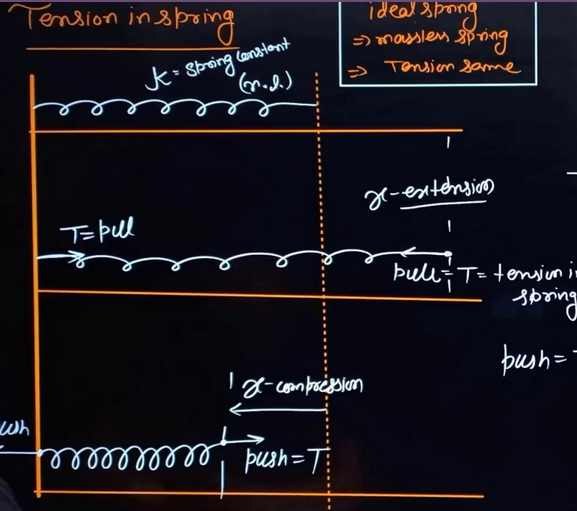 Tension in spring
ideal spring
⇒ massless spring
⇒ Tension same
k = spring constant
(n.l.)
x-extension
T=pull
pull=T= tension i
spring
push=
x-compression
push=T